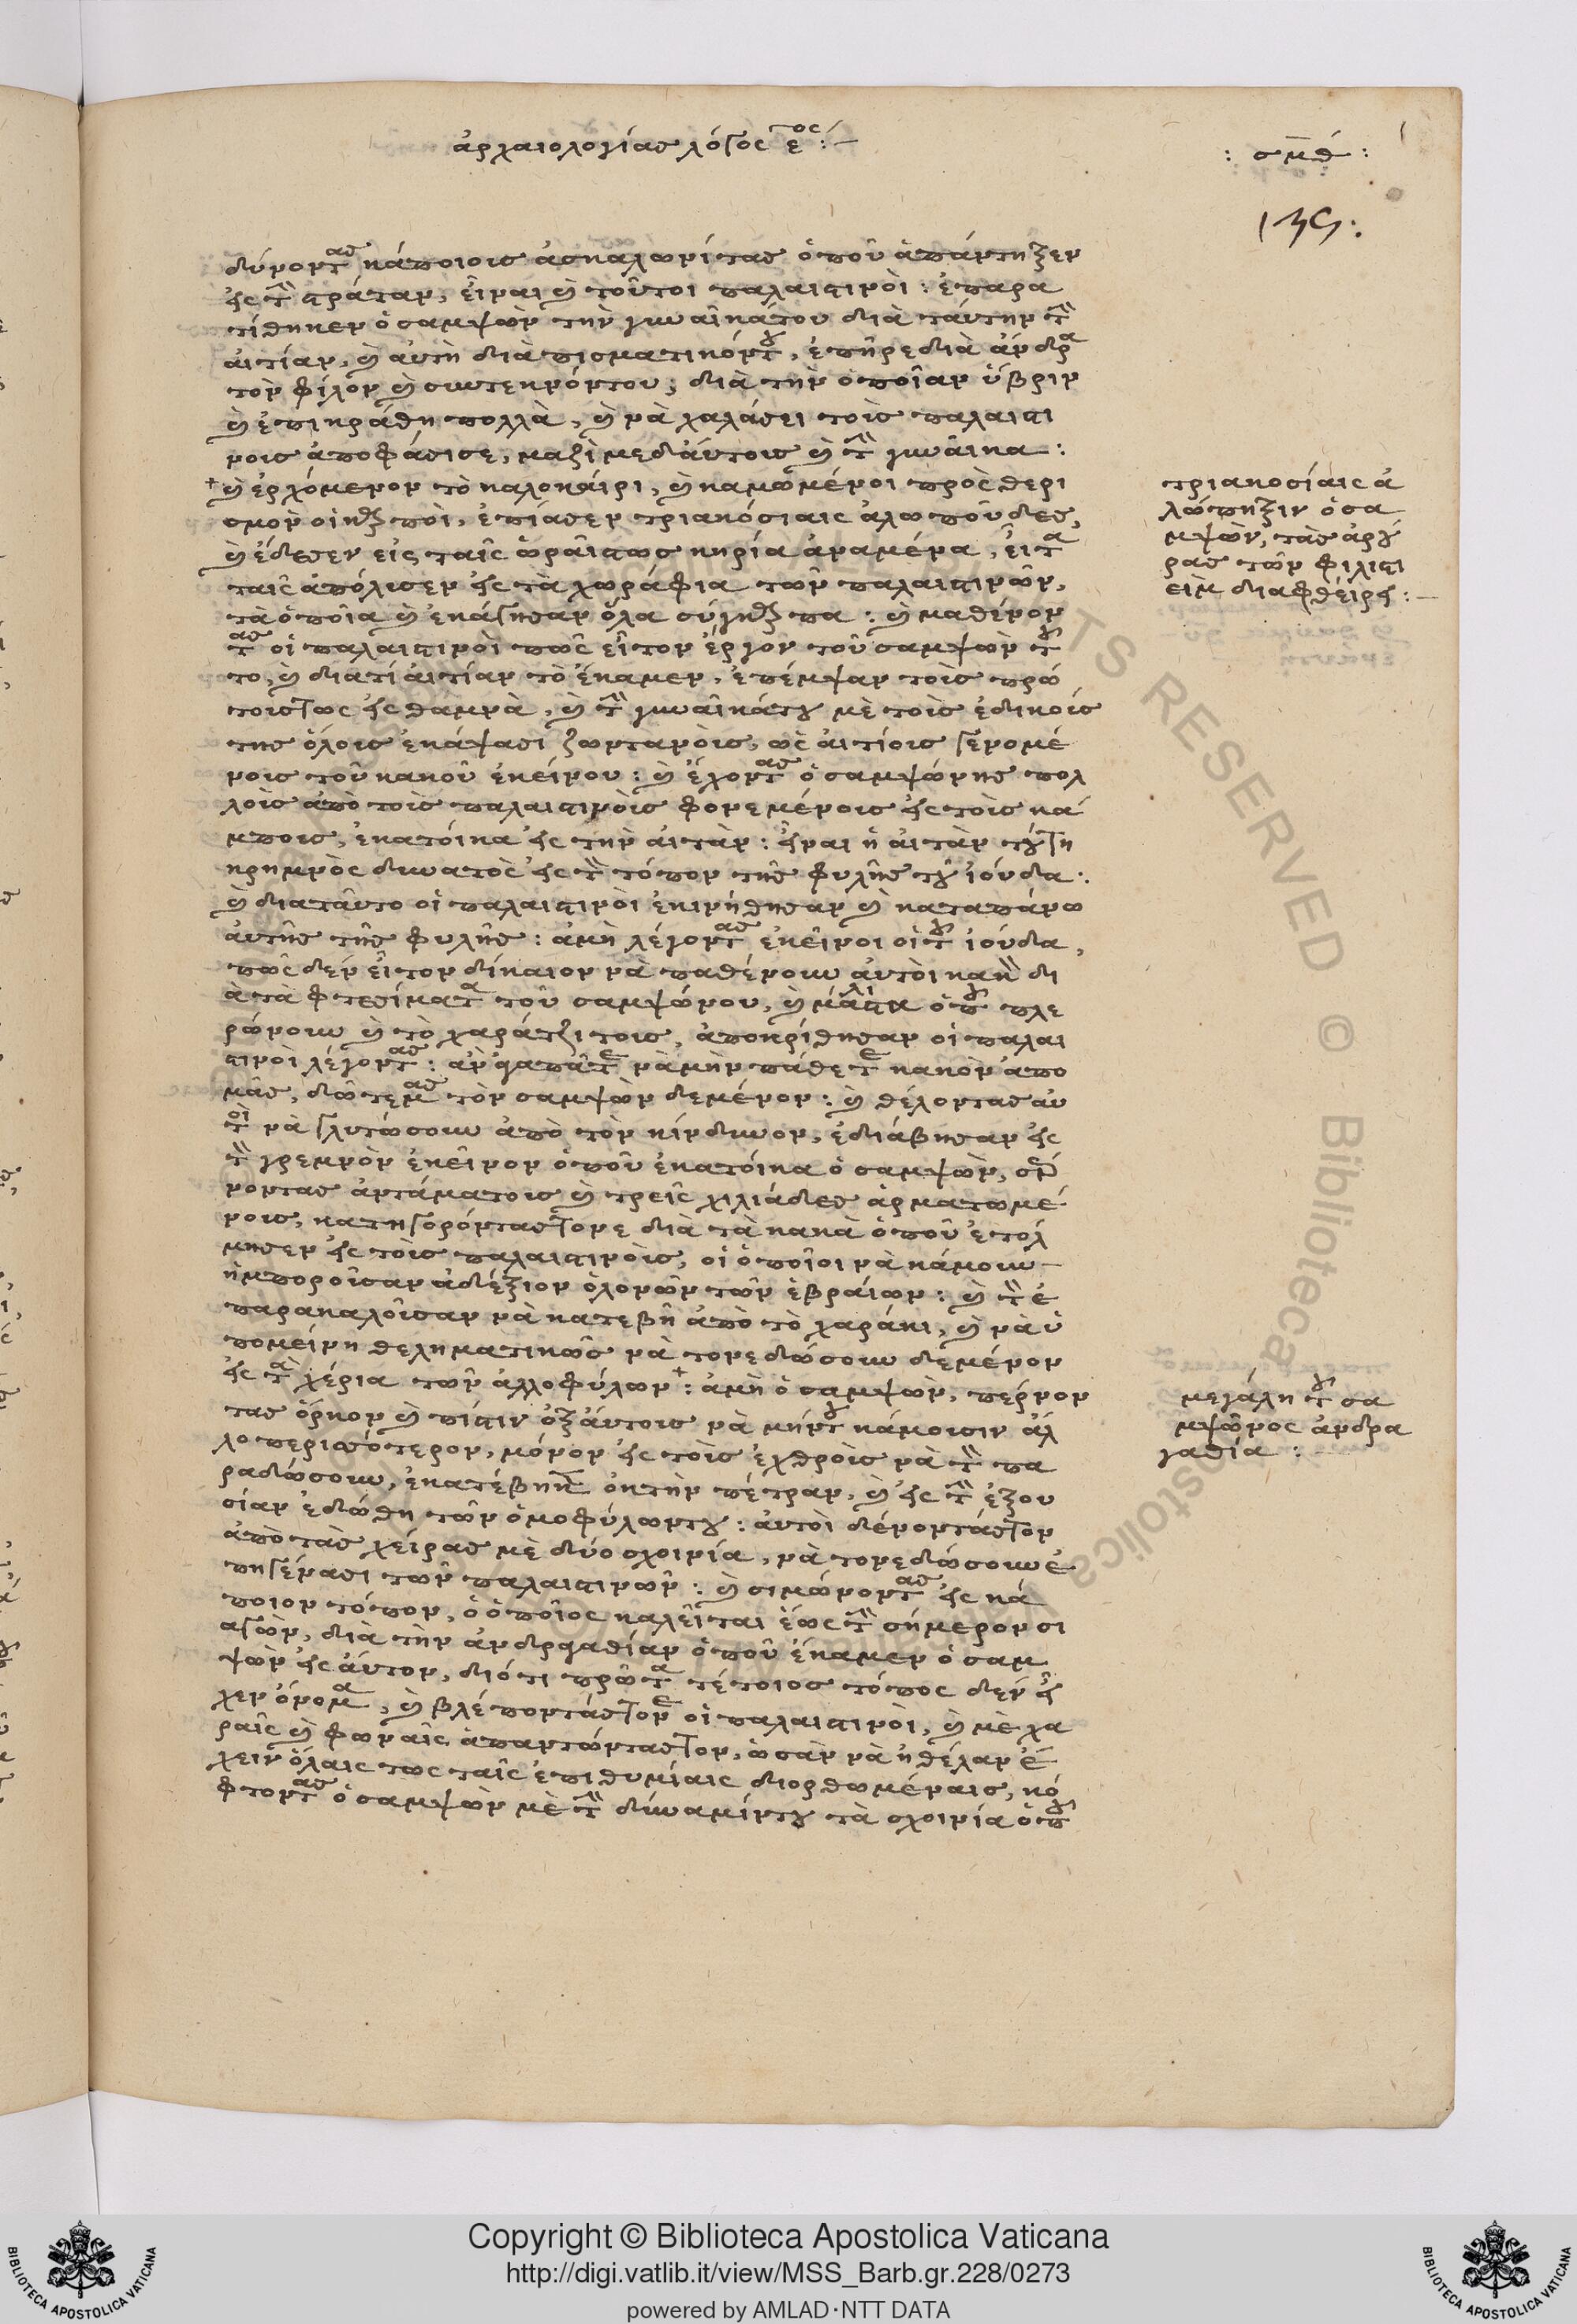 ἀρχαιολογίας λόγος εος:—
: σμθ :
139:
δύνοντας κάποιοις ἀσκαλωνίτας ὁποῦ ἀπάντηξεν
εἰς τὴν στράταν, εἶναι καὶ τοῦτοι παλαιστινοὶ: ἐπαρα
τίθηκεν ὁ σαμψὼν τὴν γυναῖκάτου διὰ ταύτην τὴν
αἰτίαν, καὶ αὐτὴ διὰ πισματικόντου, ἐπῆρε διὰ ἄνδρα
τὸν φίλον καὶ συντεκνόντου; διὰ τὴν ὁποῖαν ὕβριν
καὶ ἐπικράθη πολλὰ, καὶ νὰ χαλάσει τοὶς παλαιστι
νοις ἀποφάσισε, μαζὶ μεδαύτοις καὶ τὴν γυναῖκα:
+ καὶ ἐρχόμενον τὸ καλοκαίρι, καὶ καμωμένοι πρὸς θερι
σμὸν οἱ καρποὶ, ἐπίασεν τριακόσιαις ἀλωποῦδες,
καὶ ἔδεσεν εἰς ταῖς ὡραῖςτως κηρία ἀναμένα, εἶτα
ταῖς ἀπόλισεν εἰς τὰ χωράφια τῶν παλαιστινῶν,
τὰ ὁποῖα καὶ ἐκάγησαν ὅλα σύγκαρπα: καὶ μαθένον
τας οἱ παλαιστινοὶ πῶς εἶτον ἔργον τοῦ σαμψὼν τοῦ
το, καὶ διατί αἰτίαν τὸ ἔκαμεν, ἔπέμψαν τοὶς πρώ
τοιςτως εἰς θαμνὰ, καὶ τὴν γυναῖκάτου μὲ τοὶς ἐδικοίς
της ὅλοις ἐκάψασι ζωντανοὶς, ὡς αἰτίοις γενομέ
νοις τοῦ κακοῦ ἐκείνου: καὶ ἔχοντας ὁ σαμψώνης πολ
λοὶς ἀπὸ τοὶς παλαιστινοὶς φονεμένοις εἰς τοὶς κά
μποις, ἐκατόικα εἰς τὴν αἰτὰν: εἶναι ἡ αἰτὰν τούτη
κρημνὸς δυνατὸς εἰς τὸν τόπον τῆς φυλῆς τοῦ ἰούδα:
καὶ διαταῦτο οἱ παλαιστινοὶ ἐκινήθησαν καὶ καταπάνω
αὐτῆς τῆς φυλῆς: ἀμὴ λέγοντας ἐκεῖνοι οἱ τοῦ ἰούδα,
πῶς δὲν εἶτον δίκαιον νὰ παθένουν αὐτοὶ κακὸν δι
ὰ τὰ φτεσίματα τοῦ σαμψώνου, καὶ μάλιστα ὁποῦ πλε
ρώνουν καὶ τὸ χαράτζιτοις, ἀποκρίθησαν οἱ παλαι
στινοὶ λέγοντας: ἂν ἀγαπᾶτε νὰ μὴν πάθετε κακὸν ἀπο
μᾶς, δῶτεμας τὸν σαμψὼν δεμένον: καὶ θέλοντας αὐ
τοὶ νὰ γλυτώσουν ἀπὸ τὸν κίνδυνον, ἐδιάβησαν εἰς
τὸν γρεμνὸν ἐκεῖνον ὁποῦ ἐκατόικα ὁ σαμψὼν, σέρ
νοντας ἀντάματοις καὶ τρεῖς χιλιάδες ἁρματωμέ
νοις, κατηγορόντάςτονε διὰ τὰ κακὰ ὁποῦ ἐτόλ
μησεν εἰς τοὶς παλαιστινοὶς, οἱ ὁποῖοι νὰ κάμουν
ἡμποροῖσαν ἀδέξιον ὁλονῶν τῶν ἑβραίων: καὶ τὸν ἐ
παρακαλοῖσαν νὰ κατεβῆ ἀπὸ τὸ χαράκι, καὶ νὰ ὑ
πομείνη θεληματικῶς νὰ τονεδώσουν δεμένον
εἰς τὰ χέρια τῶν ἀλλοφύλων+: ἀμὴ ὁ σαμψὼν, πέρνον
τας ὅρκον καὶ πίστιν ἐξαύτοις νὰ μήντου κάμοισιν ἀλ
λο περισσότερον, μόνον εἰς τοὶς ἐχθροὶς νὰ τὸν πα
ραδώσουν, ἐκατέβηκεν ἐκτὴν πέτραν, καὶ εἰς τὴν ἐξου
σίαν ἐδώθη τῶν ὁμοφύλωντου: αὐτοὶ δένοντάςτον
ἀπὸ τὰς χείρας μὲ δύο σχοινία, νὰ τονεδώσουν ἐ
πηγένασι τῶν παλαιστινῶν: καὶ σιμώνοντας εἰς κά
ποιον τόπον, ὁ ὁποῖος καλεῖται ἕως τὴν σήμερον σι
αγὼν, διὰ τὴν ἀνδραγαθίαν ὁποῦ ἔκαμεν ὁ σαμ
ψὼν εἰς αὐτον, διότι πρῶτα τέτοιος τόπος δὲν εἶ
χεν ὄνομα, καὶ βλέποντάςτονε οἱ παλαιστινοὶ, καὶ μὲ χα
ραῖς καὶ φωναῖς ἀπαντώντάςτον, ὡσὰν νὰ ἠθέλαν ἔ
χειν ὅλαις τως ταῖς ἐπιθυμίαις διορθωμέναις, κό
φτοντας ὁ σαμψὼν μὲ τὴν δύναμίντου τὰ σχοινία ὁποῦ
τριακοσίαις ἀ
λώπηξιν ὁ σα
μψὼν, τὰς ἀρού
ρας τῶν φιλιστι
εὶμ διαφθείρει:—
μεγάλη τοῦ σα
μψῶνος ἀνδρα
γαθία:—